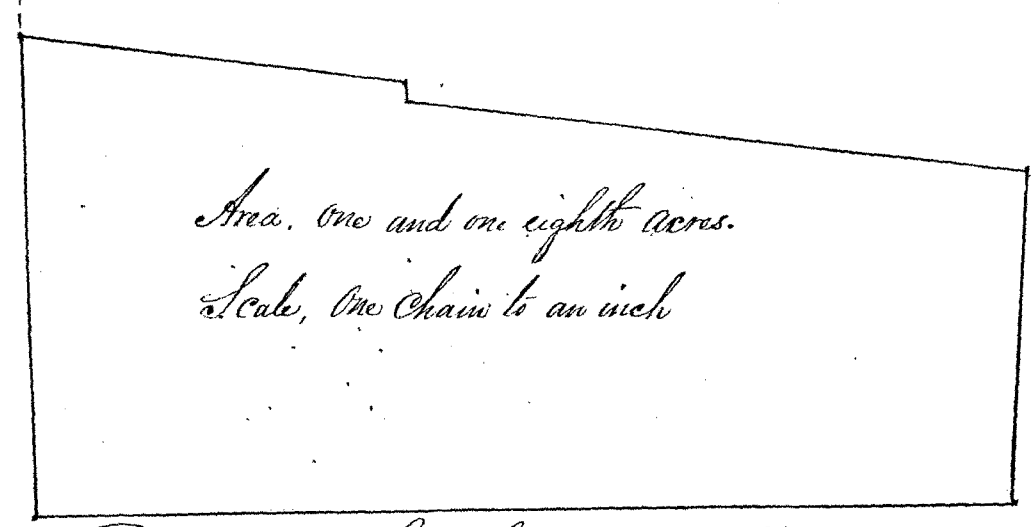 Area. One and one eighth acres.
Scale, One Chain to an inch